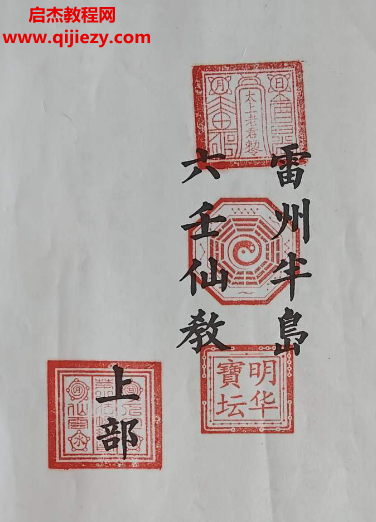 启杰教程网
www.qijiezy.com
太上老君敕
雷州半島
六壬仙教
明华
寶坛
上部